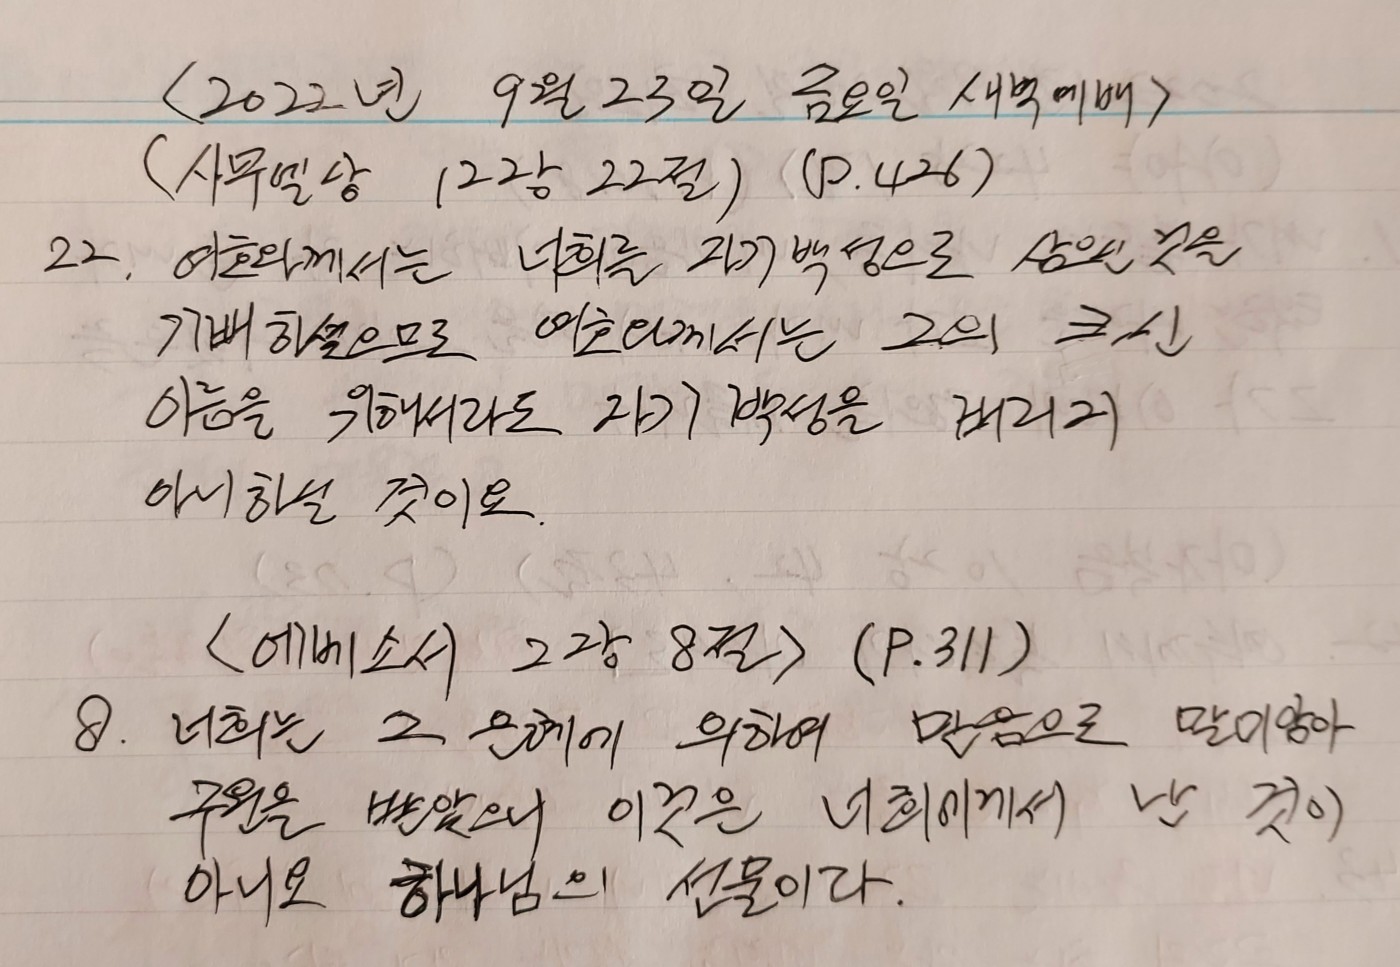 <2022년 9월 23일 금요일 새벽예배>
(사무엘상 12장 22절) (P.426)
22. 여호와께서는 너희를 자기 백성으로 삼으신 것을
기뻐하셨으므로 여호와께서는 그의 크신
이름을 위해서라도 자기 백성을 버리지
아니하실 것이요.
<에베소서 2장 8절> (P.311)
8. 너희는 그 은혜에 의하여 믿음으로 말미암아
구원을 받았으니 이것은 너희에게서 난 것이
아니요 하나님의 선물이다.